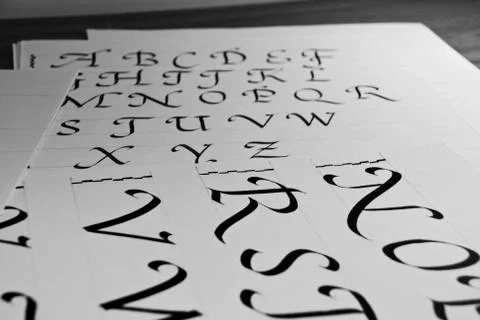 A B C D E F
G H I J K L
M N O P Q R
S T U V W
X Y Z
V R N
S O E
T